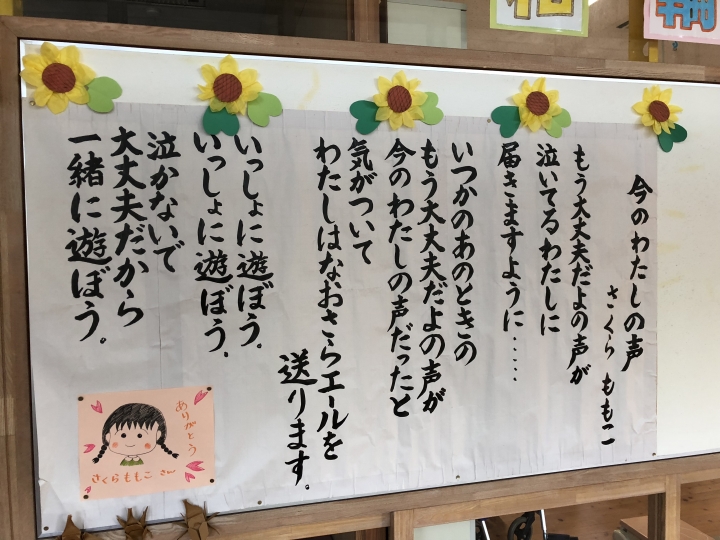 今のわたしの声
さくら ももこ
もう大丈夫だよの声が
泣いてるわたしに
届きますように.....
いつかのあのときの
もう大丈夫だよの声が
今のわたしの声だったと
気がついて
わたしはなおさらエールを
送ります。
いっしょに遊ぼう。
いっしょに遊ぼう。
泣かないで
大丈夫だから
一緒に遊ぼう。
ありがとう
さくらももこ さん